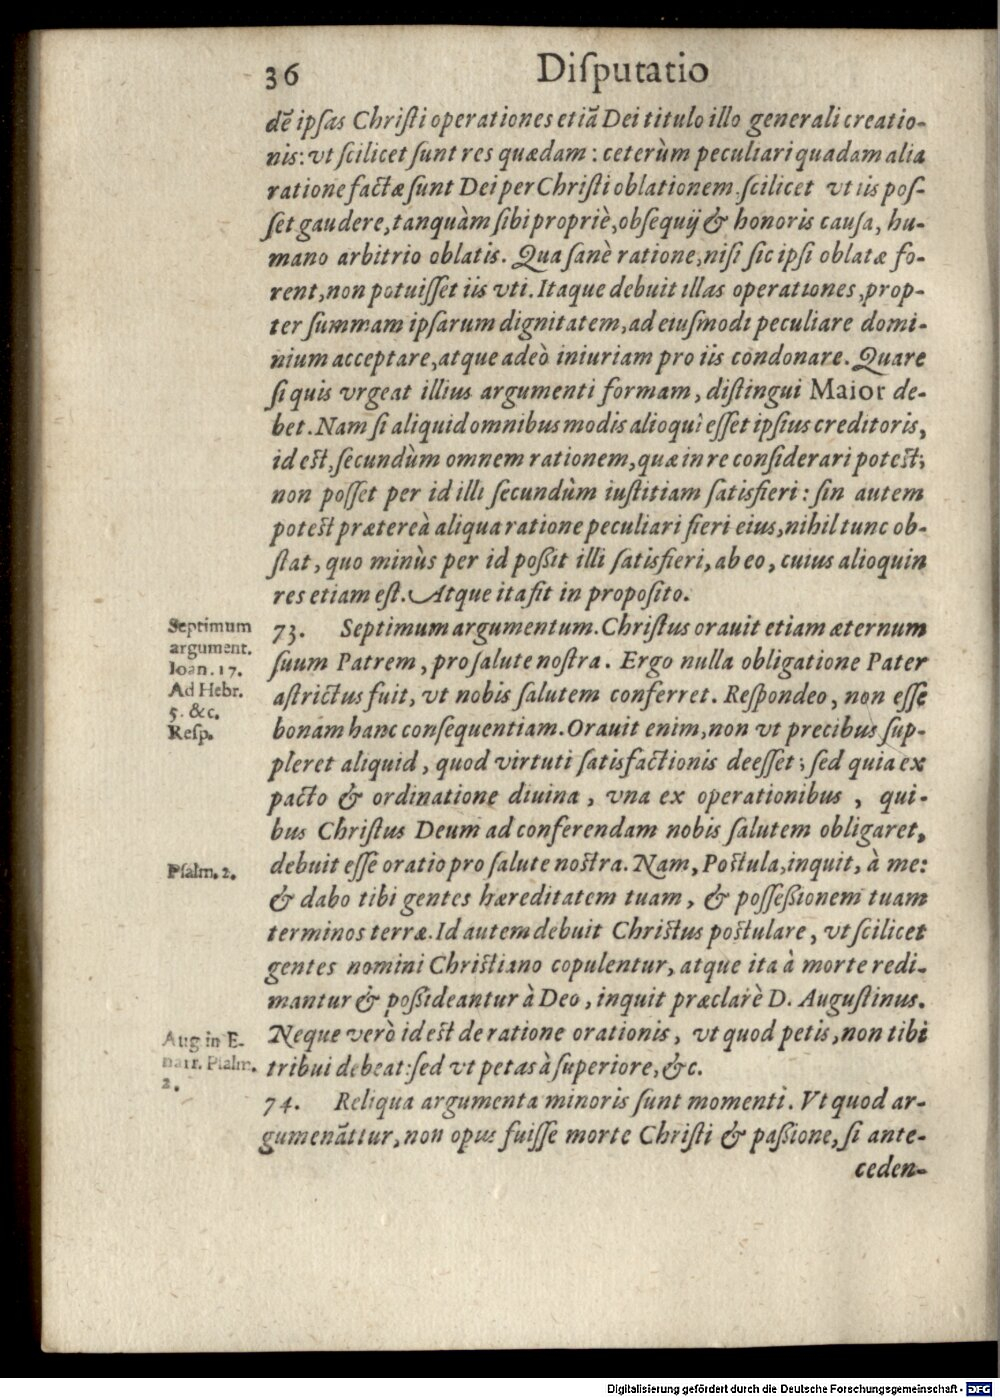 36 Diſputatio
dẽ ipſas Chriſti operationes etiã Dei titulo illo generali creatio-
nis: vt ſcilicet ſunt res quædam: ceterùm peculiari quadam alia
ratione factæ ſunt Dei per Chriſti oblationem. ſcilicet vt iis poſ-
ſet gaudere, tanquàm ſibi propriè, obſequij & honoris cauſa, hu-
mano arbitrio oblatis. Qua ſanè ratione, niſi ſic ipſi oblatæ fo-
rent, non potuiſſet iis vti. Itaque debuit illas operationes, prop-
ter ſummam ipſarum dignitatem, ad eiuſmodi peculiare domi-
nium acceptare, atque adeò iniuriam pro iis condonare. Quare
ſi quis vrgeat illius argumenti formam, diſtingui Maior de-
bet. Nam ſi aliquid omnibus modis alioqui eſſet ipſius creditoris,
id eſt, ſecundùm omnem rationem, quæ in re conſiderari poteſt;
non poſſet per id illi ſecundùm iuſtitiam ſatisfieri: ſin autem
poteſt prætereà aliqua ratione peculiari fieri eius, nihil tunc ob-
ſtat, quo minùs per id poßit illi ſatisfieri, ab eo, cuius alioquin
res etiam eſt. Atque ita ſit in propoſito.
Septimum
argument.
Ioan. 17.
Ad Hebr.
5. &c.
Reſp.
73. Septimum argumentum. Chriſtus orauit etiam æternum
ſuum Patrem, pro ſalute noſtra. Ergo nulla obligatione Pater
aſtrictus fuit, vt nobis ſalutem conferret. Reſpondeo, non eſſe
bonam hanc conſequentiam. Orauit enim, non vt precibus ſup-
pleret aliquid, quod virtuti ſatisfactionis deeſſet; ſed quia ex
pacto & ordinatione diuina, vna ex operationibus, qui-
bus Chriſtus Deum ad conferendam nobis ſalutem obligaret,
Pſalm. 2.
debuit eſſe oratio pro ſalute noſtra. Nam, Poſtula, inquit, à me:
& dabo tibi gentes hæreditatem tuam, & poſſeßionem tuam
terminos terræ. Id autem debuit Chriſtus poſtulare, vt ſcilicet
gentes nomini Chriſtiano copulentur, atque ita à morte redi-
mantur & poßideantur à Deo, inquit præclarè D. Auguſtinus.
Aug in E-
narr. Pſalm.
2.
Neque verò id eſt de ratione orationis, vt quod petis, non tibi
tribui debeat: ſed vt petas à ſuperiore, &c.
74. Reliqua argumenta minoris ſunt momenti. Vt quod ar-
gumenãttur, non opus fuiſſe morte Chriſti & paßione, ſi ante-
ceden-
Digitalisierung gefördert durch die Deutsche Forschungsgemeinschaft - DFG